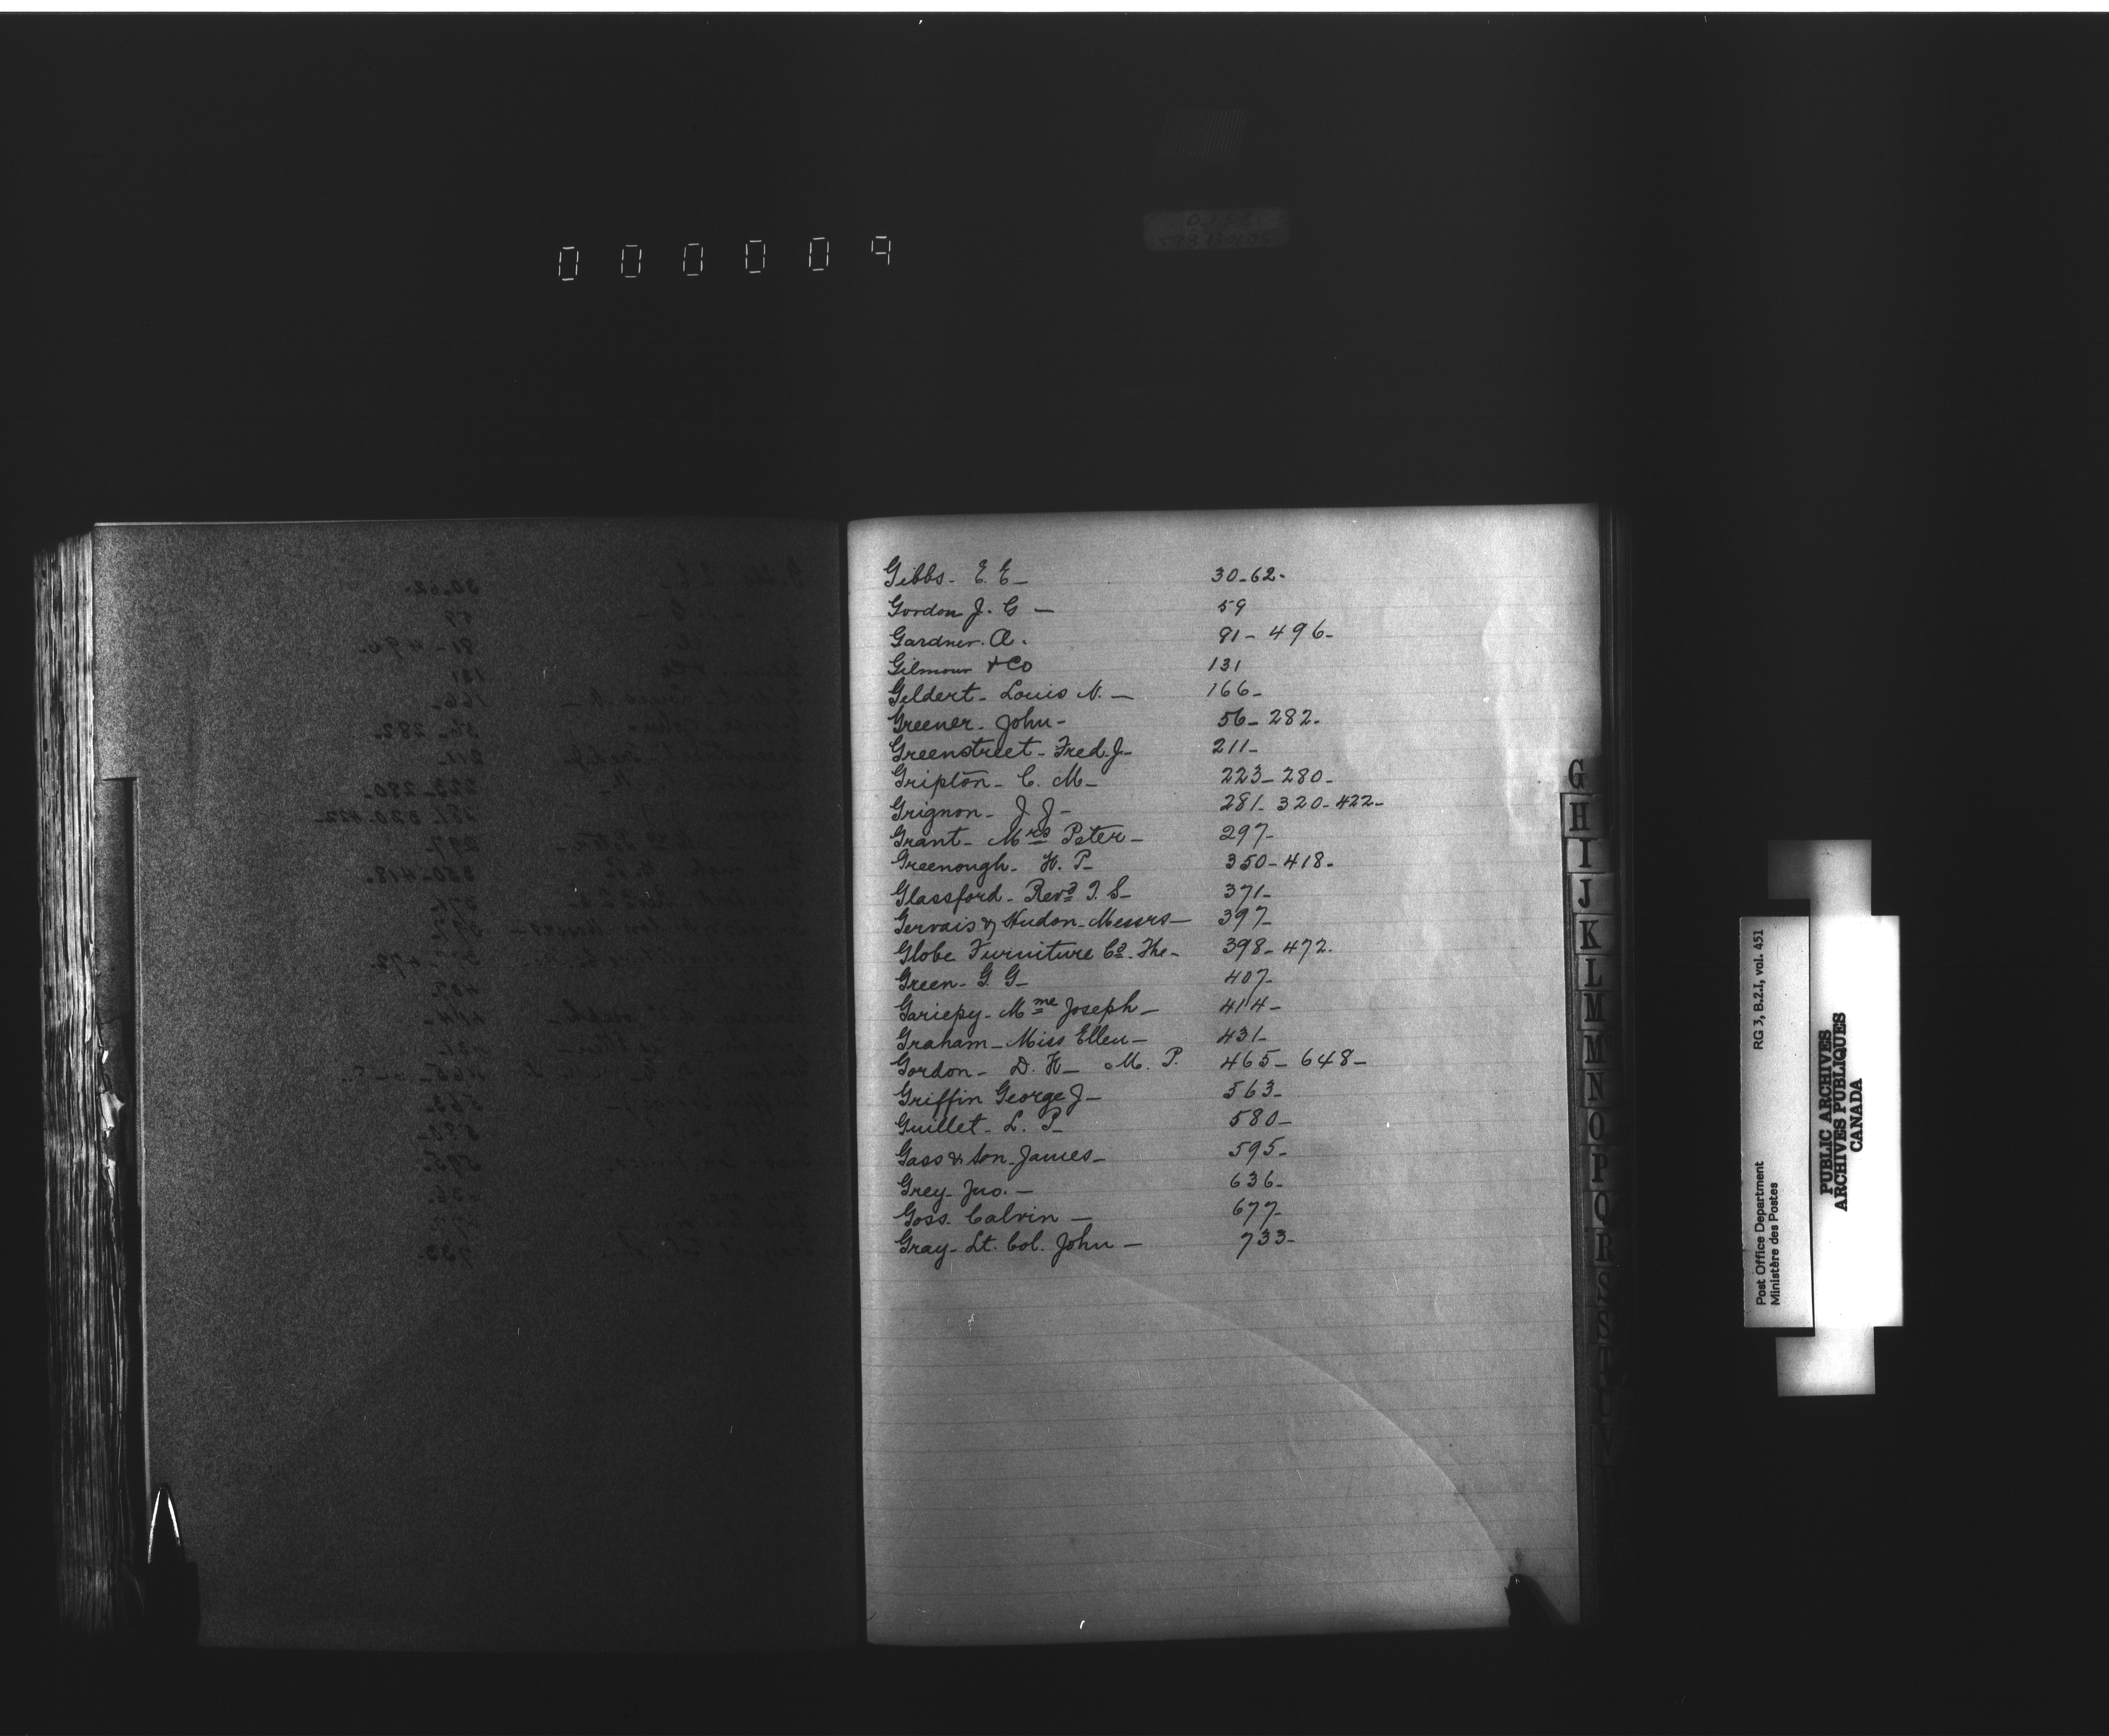 000009
Gibbs- E. E- 30-62-
Gordon J. G - 59
Gardner. A. 91- 496-
Gilmour & Co 131
Geldert- Louis N.- 166-
Greener- John- 56- 282-
Greenstreet- Fred. J- 211-
Gripton- C. M- 223- 280-
Grignon- J. J- 281- 320- 422-
Grant- Mrs Peter- 297-
Greenough- H. P- 350-418-
Glassford- Revd T. S- 371-
Gervais & Hudon- Messrs- 397-
Globe Furniture Co- The- 398- 472-
Green- G. G- 407-
Gariepy- Mme Joseph- 414-
Graham- Miss Ellen- 431-
Gordon- D. H- M. P. 465- 648-
Griffin George J- 563-
Guillet- L. P- 580-
Gass & Son- James- 595-
Grey- Jno.- 636-
Goss. Calvin- 677-
Gray- Lt. Col. John- 733-
G
H
I
J
K
L
M
N
O
P
Q
R
S
RG 3, B.2.I, vol. 451
Post Office Department
Ministère des Postes
PUBLIC ARCHIVES
ARCHIVES PUBLIQUES
CANADA